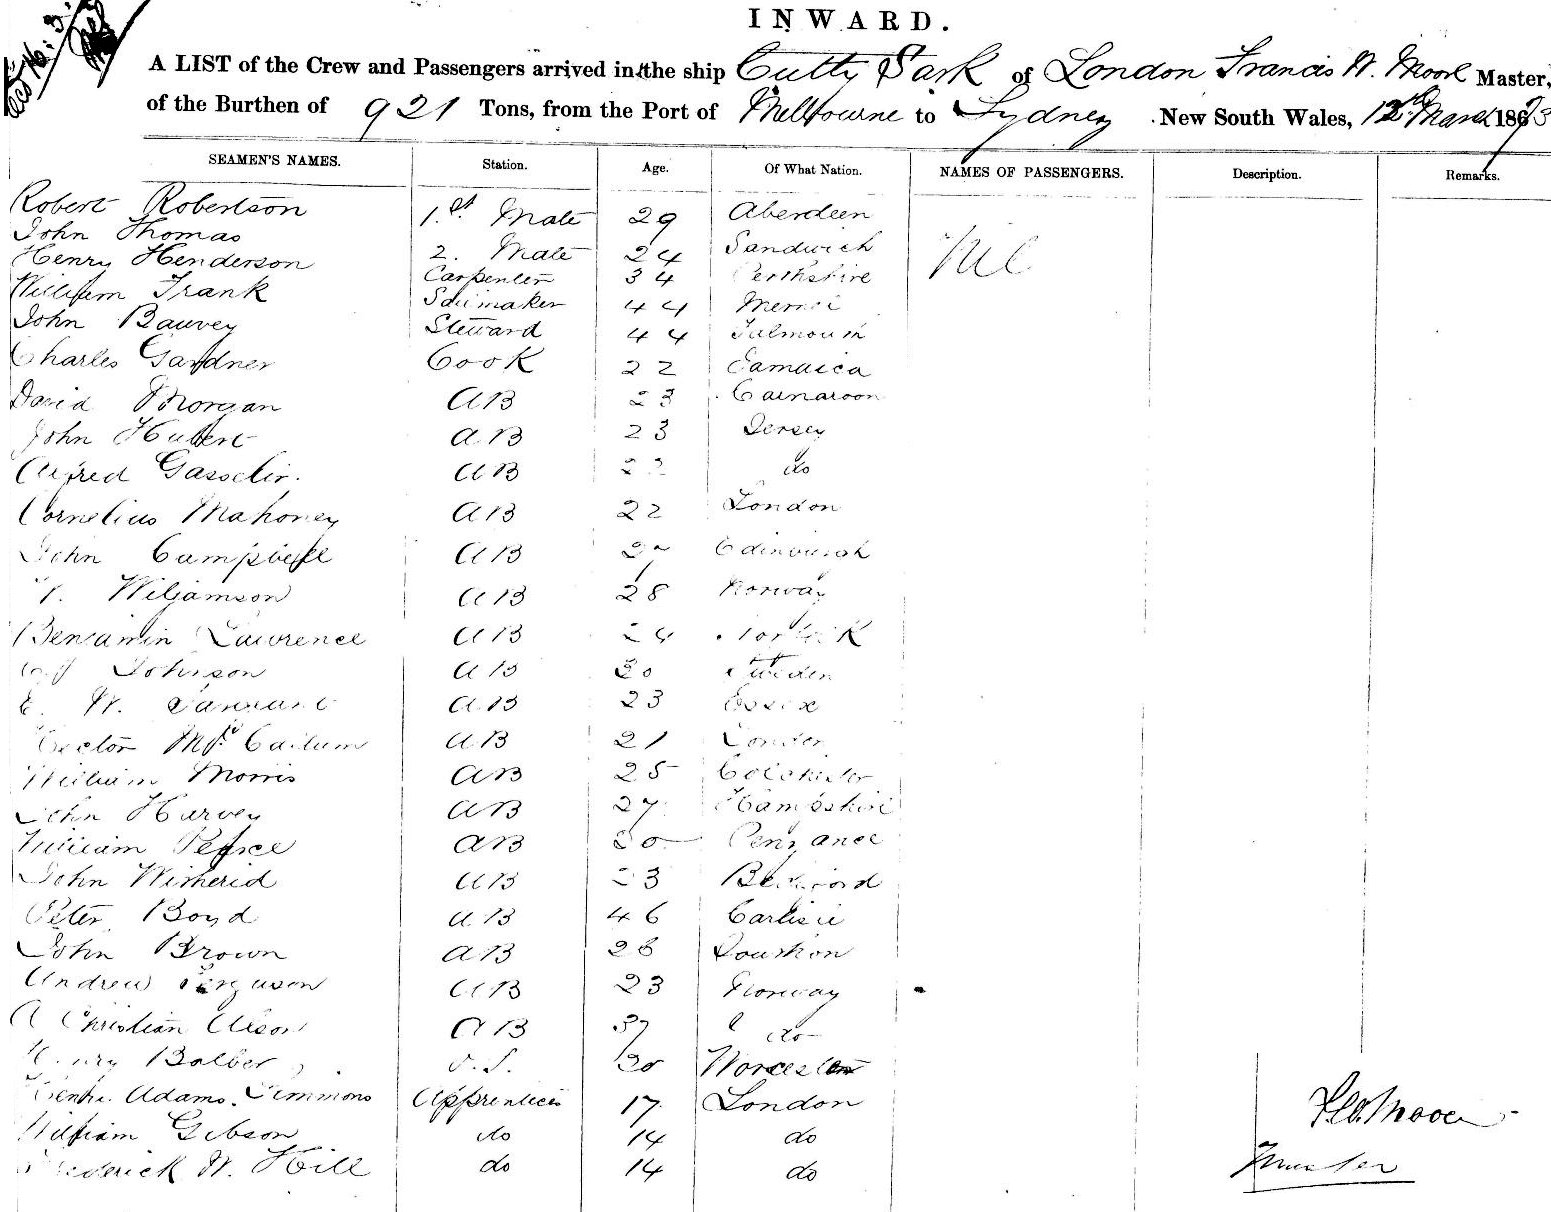 INWARD.
A LIST of the Crew and Passengers arrived in the ship Cutty Sark of London Francis W. Moore Master,
of the Burthen of 921 Tons, from the Port of Melbourne to Sydney New South Wales, 12th March 1873
SEAMEN'S NAMES. Station. Age. Of What Nation. NAMES OF PASSENGERS. Description. Remarks.
Robert Robertson 1.st Mate 29 Aberdeen Nil
John Thomas 2. Mate 24 Sandwich
Henry Henderson Carpenter 34 Perthshire
William Frank Sailmaker 44
John Steward 44 Falmouth
Charles Gardner Cook 22 Jamaica
David Morgan AB 23 Carnarvon
John Hubert AB 23 Jersey
Alfred AB do
Cornelius Mahoney AB 22 London
John Campbell AB Edinburgh
Wiljamson AB 28 Norway
Benjamin Lawrence AB 24
Johnson AB 30 Sweden
E. W. AB 23 Essex
Hector Mc Callum AB 21 London
William Morris AB 25 Colchester
John Harvey AB 27 Hampshire
William Pearce AB 20 Penzance
John AB 23 Bedford
Peter Boyd AB 46 Carlisle
John Brown AB 26
Andrew Ferguson AB 23 Norway
A Christian Olson AB 37 do
Henry O.S. 30 Worcester
Adams. Timmons Apprentices 17 London
William Gibson do 14 do
Frederick W. Hill do 14 do
F.W. Moore
Master